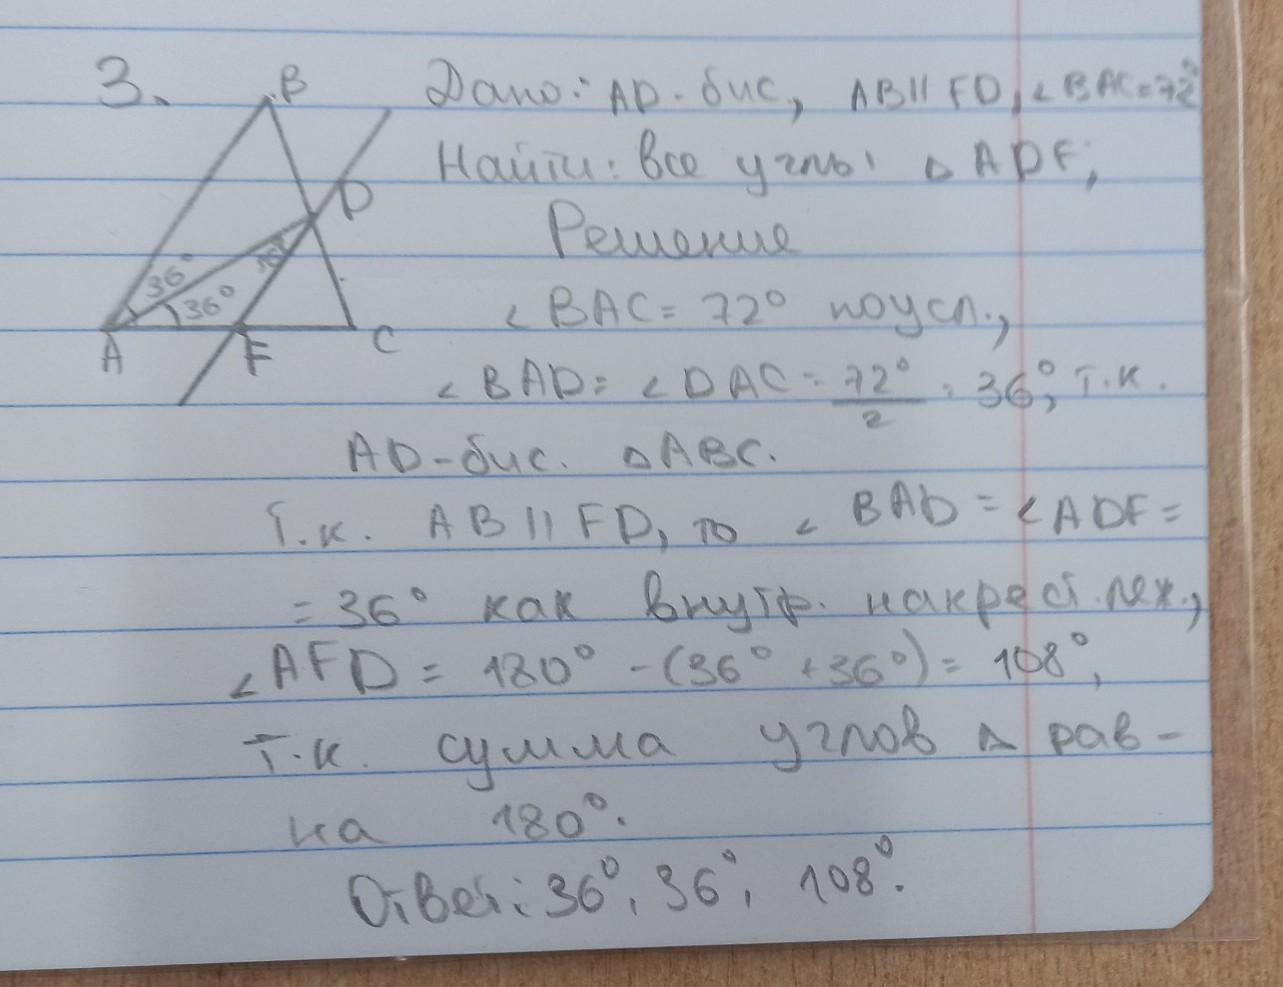 3.
B
D
36°
36°
A
F
C
Дано: AD-бис, AB || FD, ∠BAC=72°
Найти: все углы △ ADF;
Решение
∠BAC = 72° по усл.,
∠BAD = ∠DAC = 72°/2 = 36°, т.к.
AD-бис. △ABC.
Т.к. AB || FD, то ∠BAD = ∠ADF =
= 36° как внутр. накрест. леж.,
∠AFD = 180° - (36° + 36°) = 108°,
т.к. сумма углов △ рав-
на 180°.
Ответ: 36°, 36°, 108°.